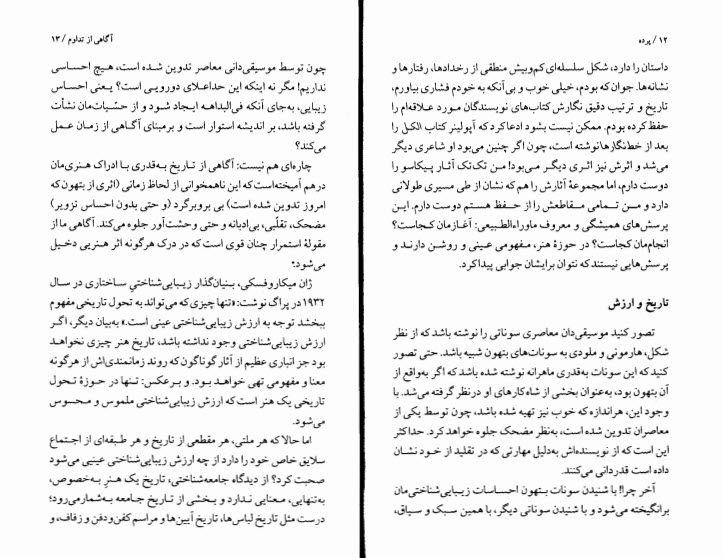 ۱۲ / پرده
داستان را دارد، شکل سلسله‌ای کم‌وبیش منطقی از رخدادها، رفتارها و
نشانه‌ها. جوان که بودم، خیلی خوب و بی‌آنکه به خودم فشاری بیاورم،
تاریخ و ترتیب دقیق نگارش کتاب‌های نویسندگان مورد علاقه‌ام را
حفظ کرده بودم. ممکن نیست بشود ادعا کرد که آپولینر کتاب الکل را
بعد از خط‌نگارها نوشته است، چون اگر چنین می‌بود او شاعری دیگر
می‌شد و اثرش نیز اثری دیگر می‌بود! من تک‌تک آثار پیکاسو را
دوست دارم، اما مجموعهٔ آثارش را هم که نشان از طی مسیری طولانی
دارد و من تمامی مقاطعش را از حفظ هستم دوست دارم. این
پرسش‌های همیشگی و معروف ماوراءالطبیعی: آغازمان کجاست؟
انجام‌مان کجاست؟ در حوزهٔ هنر، مفهومی عینی و روشن دارند و
پرسش‌هایی نیستند که نتوان برایشان جوابی پیدا کرد.
تاریخ و ارزش
تصور کنید موسیقی‌دان معاصری سوناتی را نوشته باشد که از نظر
شکل، هارمونی و ملودی به سونات‌های بتهون شبیه باشد. حتی تصور
کنید که این سونات به‌قدری ماهرانه نوشته شده باشد که اگر به‌واقع از
آن بتهون بود، به‌عنوان بخشی از شاه‌کارهای او در نظر گرفته می‌شد. با
وجود این، هراندازه که خوب نیز تهیه شده باشد، چون توسط یکی از
معاصران تدوین شده است، به‌نظر مضحک جلوه خواهد کرد. حداکثر
این است که از نویسنده‌اش به‌دلیل مهارتی که در تقلید از خود نشان
داده است قدردانی می‌کنند.
آخر چرا! با شنیدن سونات بتهون احساسات زیبایی‌شناختی‌مان
برانگیخته می‌شود و با شنیدن سوناتی دیگر، با همین سبک و سیاق،
آگاهی از تداوم / ۱۳
چون توسط موسیقی‌دانی معاصر تدوین شده است، هیچ احساسی
نداریم! مگر نه اینکه این حداعلای دورویی است؟ یعنی احساس
زیبایی، به‌جای آنکه فی‌البداهه ایجاد شود و از حسّیات‌مان نشأت
گرفته باشد، بر اندیشه استوار است و برمبنای آگاهی از زمان عمل
می‌کند؟
چاره‌ای هم نیست: آگاهی از تاریخ به‌قدری با ادراک هنری‌مان
درهم آمیخته است که این ناهمخوانی از لحاظ زمانی (اثری از بتهون که
امروز تدوین شده است) بی بروبرگرد (و حتی بدون احساس تزویر)
مضحک، تقلّبی، بی‌ادبانه و حتی وحشت‌آور جلوه می‌کند. آگاهی ما از
مقولهٔ استمرار چنان قوی است که در درک هرگونه اثر هنری‌یی دخیل
می‌شود.
ژان میکاروفسکی، بنیان‌گذار زیبایی‌شناختیِ ساختاری در سال
۱۹۳۲ در پراگ نوشت: «تنها چیزی که می‌تواند به تحول تاریخی مفهوم
ببخشد توجه به ارزش زیبایی‌شناختی عینی است.» به‌بیان دیگر، اگر
ارزش زیبایی‌شناختی وجود نداشته باشد، تاریخ هنر چیزی نخواهد
بود جز انباری عظیم از آثار گوناگون که روند زمانمندی‌اش از هرگونه
معنا و مفهومی تهی خواهد بود. و برعکس: تنها در حوزهٔ تحول
تاریخی یک هنر است که ارزش زیبایی‌شناختی ملموس و محسوس
می‌شود.
اما حالا که هر ملتی، هر مقطعی از تاریخ و هر طبقه‌ای از اجتماع
سلایق خاص خود را دارد از چه ارزش زیبایی‌شناختی عینی‌یی می‌شود
صحبت کرد؟ از دیدگاه جامعه‌شناختی، تاریخ یک هنرِ به‌خصوص،
به‌تنهایی، معنایی ندارد و بخشی از تاریخ جامعه به‌شمار می‌رود؛
درست مثل تاریخ لباس‌ها، تاریخ آیین‌ها و مراسم کفن‌ودفن و زفاف، و